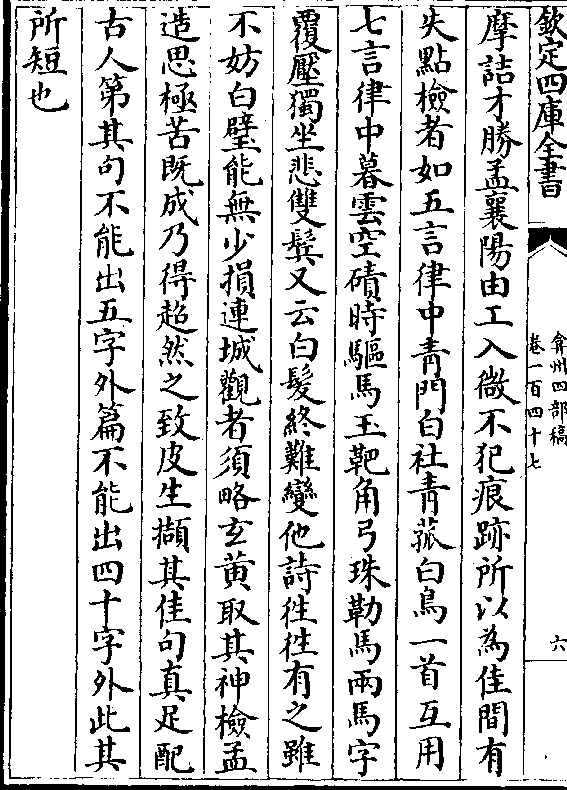 欽定四庫全書
弇州四部稿
卷一百四十七
六
摩詰才勝孟襄陽由工入微不犯痕跡所以為佳間有
失點檢者如五言律中青門白社青菰白鳥一首互用
七言律中暮雲空磧時驅馬玉靶角弓珠勒馬兩馬字
覆壓獨坐悲雙鬂又云白髮終難變他詩徃徃有之雖
不妨白璧能無少損連城觀者須略玄黄取其神檢孟
造思極苦既成乃得超然之致皮生擷其佳句真足配
古人第其句不能出五字外篇不能出四十字外此其
所短也